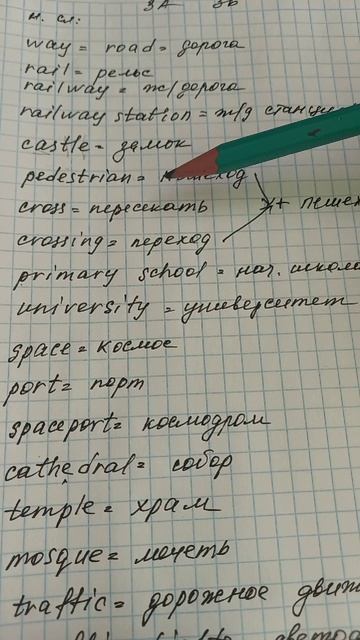 н. сл:
way = road = дорога
rail = рельс
railway = ж/дорога
railway station = ж/д
castle = замок
pedestrian = пешеход
cross = пересекать
crossing = переход
primary school = нач. школа
university = университет
space = космос
port = порт
spaceport = космодром
cathedral = собор
temple = храм
mosque = мечеть
traffic = дорожное